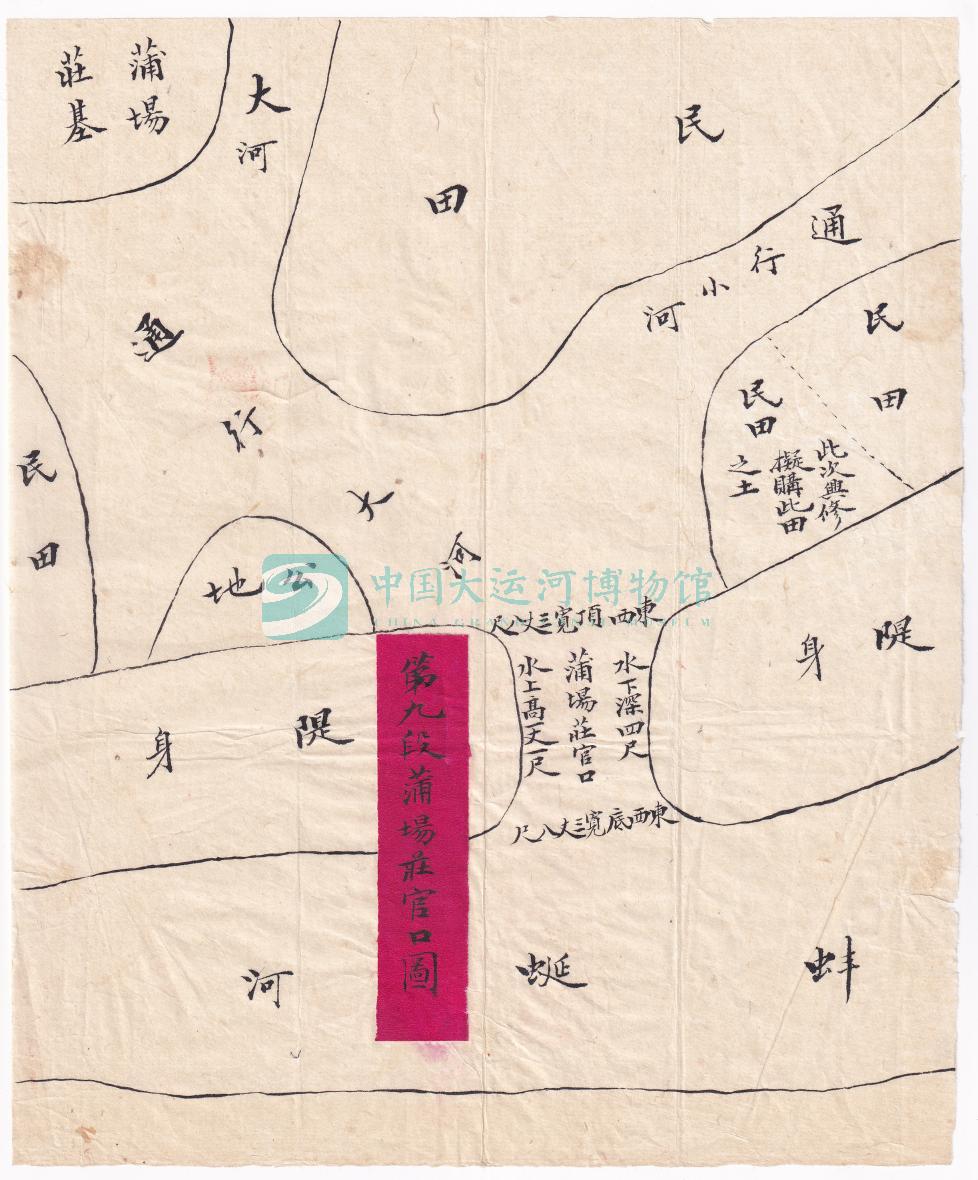 蒲場
莊基
大河
民
田
通行小河
民田
民田
此次興修
擬購此田
之土
通行大河
民田
公地
中国大运河博物馆
CHINA GRAND CANAL MUSEUM
東西頂寬三丈八尺
水下深四尺
蒲場莊官口
水上高一丈一尺
東西底寬三丈八尺
隄身
隄身
第九段蒲場莊官口圖
蚌蜒河